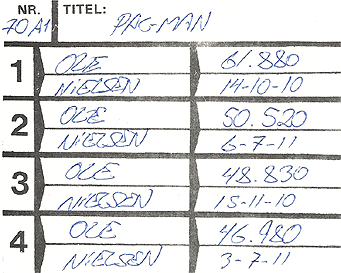 NR. TITEL:
70A1 PAC-MAN
1 OLE 61.880
NIELSEN 14-10-10
2 OLE 50.520
NIELSEN 6-7-11
3 OLE 48.830
NIELSEN 15-11-10
4 OLE 46.980
NIELSEN 3-7-11